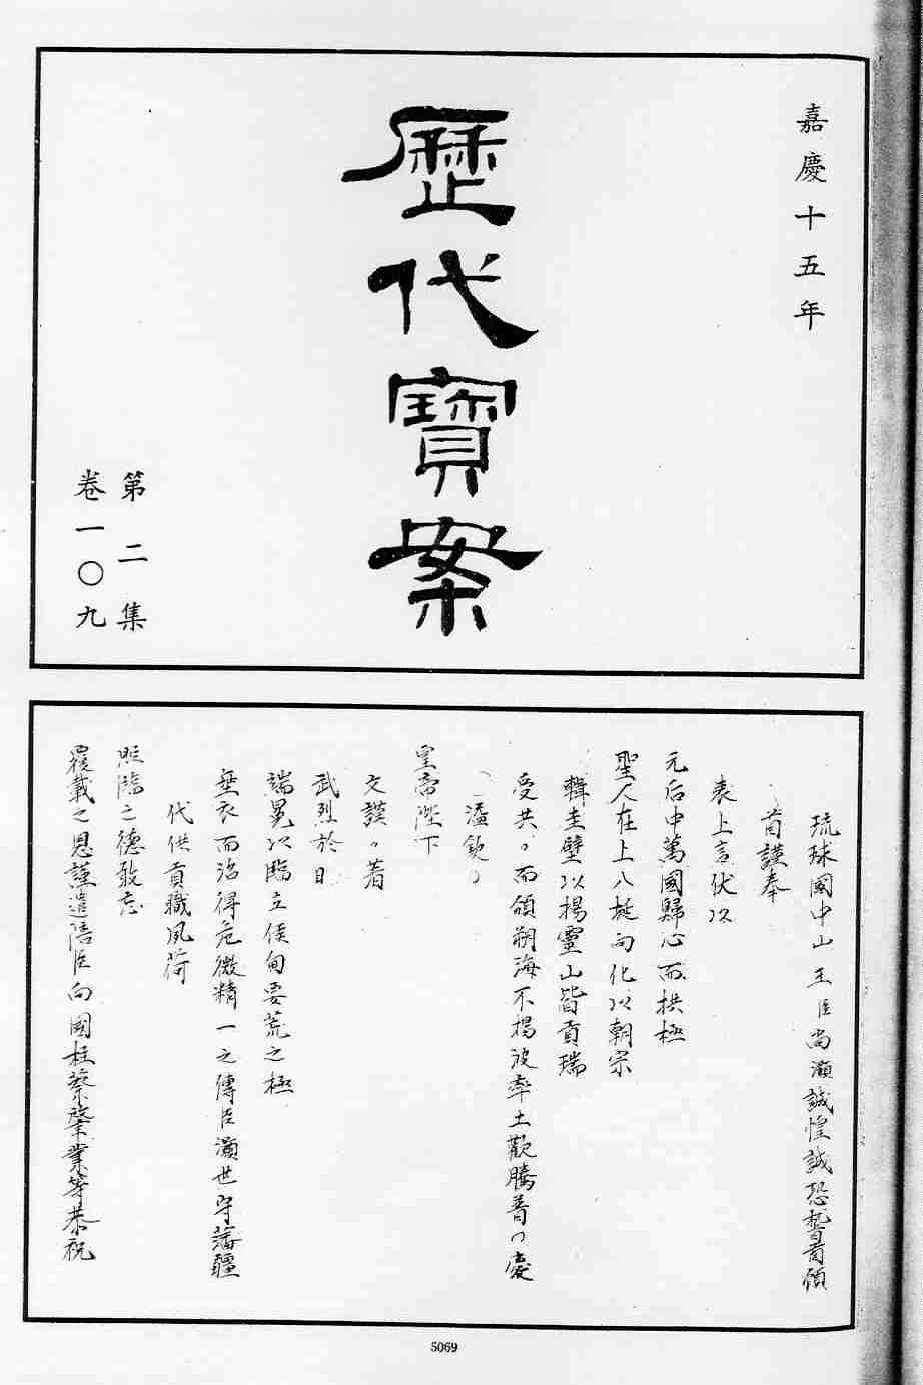 嘉慶十五年
歷代寶案
第二集
卷一〇九
琉球國中山王臣尚灝誠惶誠恐稽首頓
首謹奉
表上言伏以
元后中萬國歸心而拱極
聖人在上八埏向化以朝宗
輯圭璧以揚靈山皆貢瑞
受共〃而頒朔海不揚波率土歡騰普〃慶
溢欽〃
皇帝陛下
文謨〃著
武烈於日
端冕以臨立侯甸要荒之極
垂衣而治得危微精一之傳臣灝世守藩疆
代供貢職夙荷
照臨之德敢忘
覆載之恩謹遣陪臣向國柱蔡肇業等恭祝
5069